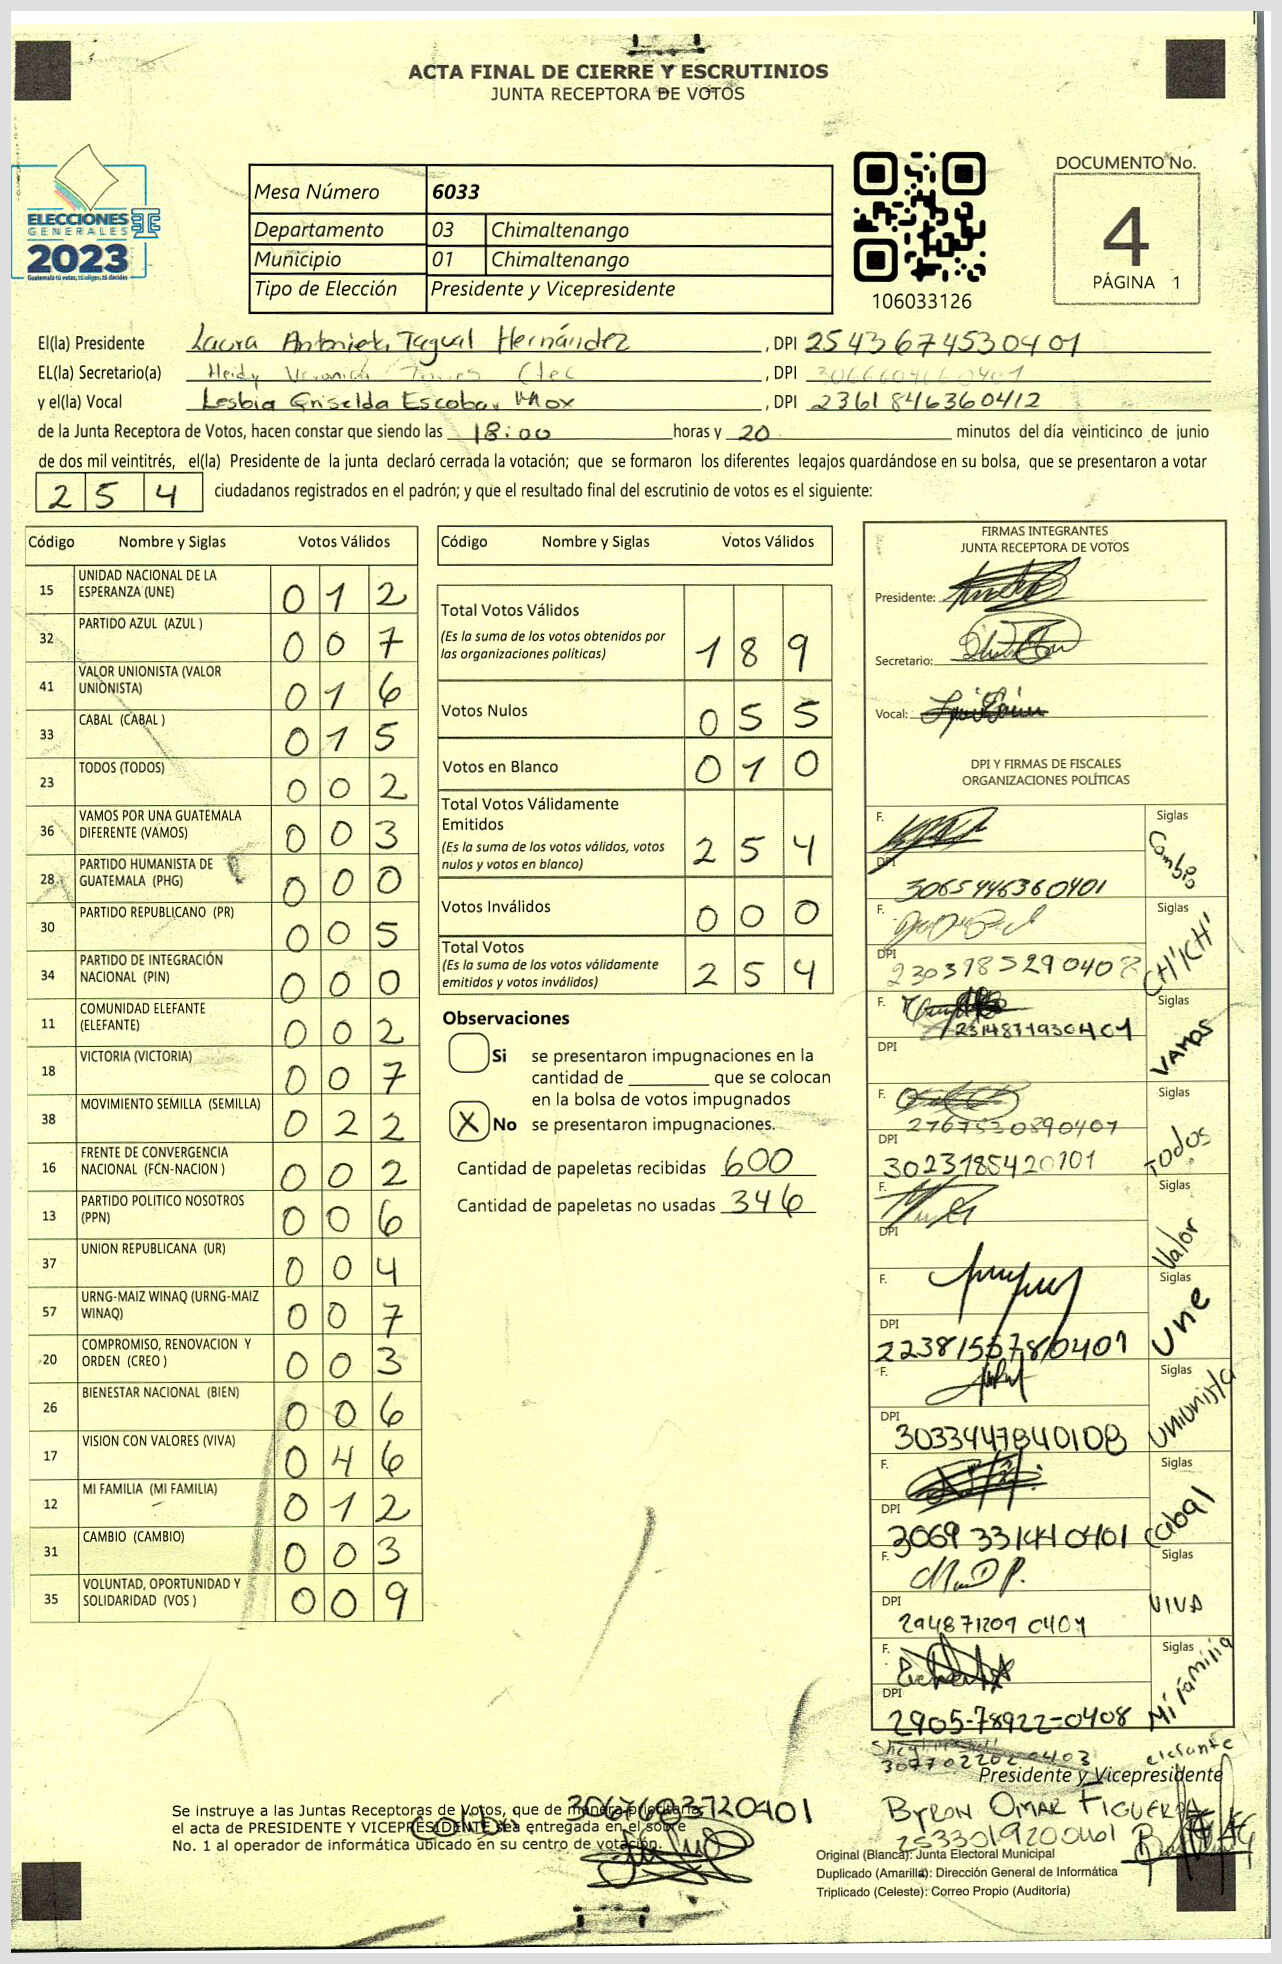 ACTA FINAL DE CIERRE Y ESCRUTINIOS
JUNTA RECEPTORA DE VOTOS
ELECCIONES
GENERALES
2023
Guatemala tú votas, tú eliges, tú decides
Mesa Número 6033
Departamento 03 Chimaltenango
Municipio 01 Chimaltenango
Tipo de Elección Presidente y Vicepresidente
106033126
DOCUMENTO No.
4
PÁGINA 1
El(la) Presidente Laura Antonieta Tagual Hernández, DPI 2543674530401
EL(la) Secretario(a) Heidy, DPI
y el(la) Vocal Lesbia Griselda Escobar Mox, DPI 2361846360412
de la Junta Receptora de Votos, hacen constar que siendo las 18:00 horas y 20 minutos del día veinticinco de junio
de dos mil veintitrés, el(la) Presidente de la junta declaró cerrada la votación; que se formaron los diferentes legajos quardándose en su bolsa, que se presentaron a votar
254 ciudadanos registrados en el padrón; y que el resultado final del escrutinio de votos es el siguiente:
Código Nombre y Siglas Votos Válidos
15 UNIDAD NACIONAL DE LA ESPERANZA (UNE) 012
32 PARTIDO AZUL (AZUL ) 007
41 VALOR UNIONISTA (VALOR UNIONISTA) 016
33 CABAL (CABAL ) 015
23 TODOS (TODOS) 002
36 VAMOS POR UNA GUATEMALA DIFERENTE (VAMOS) 003
28 PARTIDO HUMANISTA DE GUATEMALA (PHG) 000
30 PARTIDO REPUBLICANO (PR) 005
34 PARTIDO DE INTEGRACIÓN NACIONAL (PIN) 000
11 COMUNIDAD ELEFANTE (ELEFANTE) 002
18 VICTORIA (VICTORIA) 007
38 MOVIMIENTO SEMILLA (SEMILLA) 022
16 FRENTE DE CONVERGENCIA NACIONAL (FCN-NACION ) 002
13 PARTIDO POLITICO NOSOTROS (PPN) 006
37 UNION REPUBLICANA (UR) 004
57 URNG-MAIZ WINAQ (URNG-MAIZ WINAQ) 007
20 COMPROMISO, RENOVACION Y ORDEN (CREO ) 003
26 BIENESTAR NACIONAL (BIEN) 006
17 VISION CON VALORES (VIVA) 046
12 MI FAMILIA (MI FAMILIA) 012
31 CAMBIO (CAMBIO) 003
35 VOLUNTAD, OPORTUNIDAD Y SOLIDARIDAD (VOS ) 009
Código Nombre y Siglas Votos Válidos
Total Votos Válidos 189
(Es la suma de los votos obtenidos por
las organizaciones políticas)
Votos Nulos 055
Votos en Blanco 010
Total Votos Válidamente
Emitidos 254
(Es la suma de los votos válidos, votos
nulos y votos en blanco)
Votos Inválidos 000
Total Votos 254
(Es la suma de los votos válidamente
emitidos y votos inválidos)
Observaciones
Si se presentaron impugnaciones en la
cantidad de ________ que se colocan
en la bolsa de votos impugnados
X No se presentaron impugnaciones.
Cantidad de papeletas recibidas 600
Cantidad de papeletas no usadas 346
FIRMAS INTEGRANTES
JUNTA RECEPTORA DE VOTOS
Presidente:
Secretario:
Vocal:
DPI Y FIRMAS DE FISCALES
ORGANIZACIONES POLÍTICAS
F. Siglas Cambio
DPI 3065446360401
F. Siglas
DPI 2303785290408
F. Siglas VAMOS
2314837930401
DPI
F. Siglas Todos
2767530890401
DPI 3023185420101
F. Siglas Valor
DPI
F. Siglas Une
DPI 2238155780401
F. Siglas Unionista
DPI 3033447840108
F. Siglas Cabal
DPI 3069331440401
F. Siglas VIVA
DPI 2948712090401
F. Siglas Mi familia
DPI 2905-78922-0408
3077022020403 elefante
Presidente y Vicepresidente
BYRON OMAR FIGUEROA
2533019200401
3067603720401
Se instruye a las Juntas Receptoras de Votos, que de manera prioritaria
el acta de PRESIDENTE Y VICEPRESIDENTE sea entregada en el sobre
No. 1 al operador de informática ubicado en su centro de votación.
Original (Blanca): Junta Electoral Municipal
Duplicado (Amarilla): Dirección General de Informática
Triplicado (Celeste): Correo Propio (Auditoría)